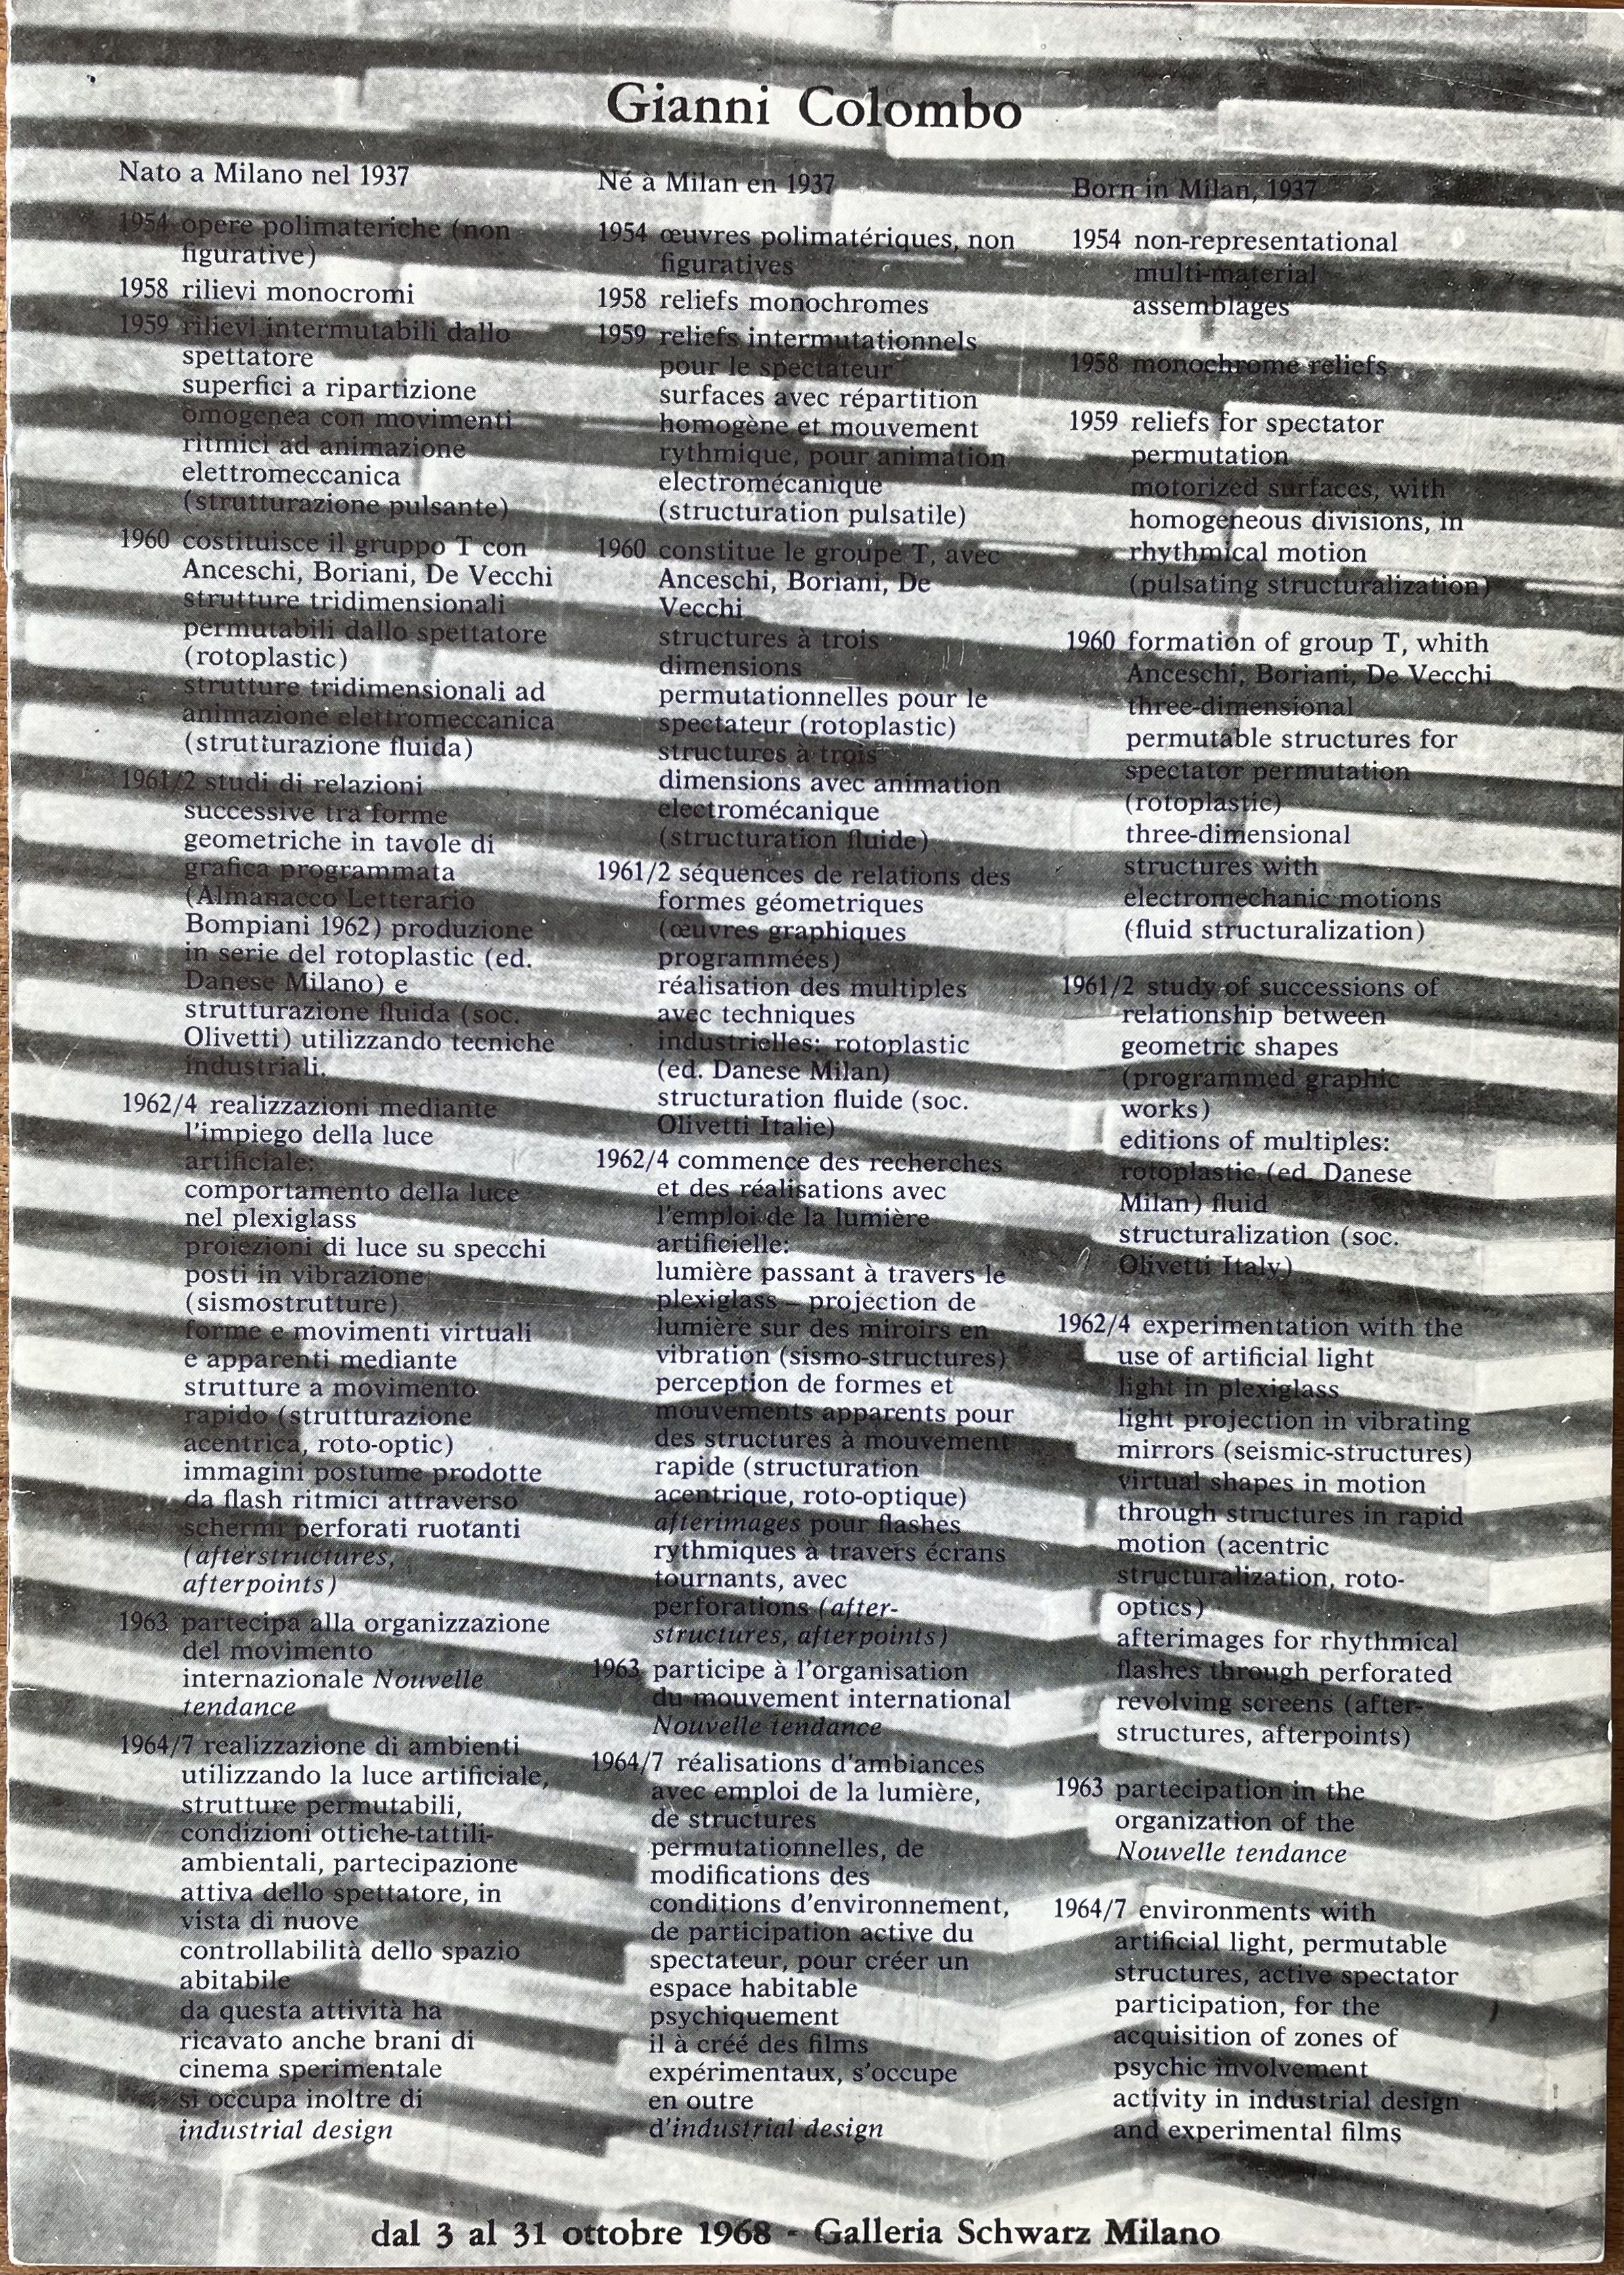 Gianni Colombo
Nato a Milano nel 1937
1954 opere polimateriche (non
figurative)
1958 rilievi monocromi
1959 rilievi intermutabili dallo
spettatore
superfici a ripartizione
omogenea con movimenti
ritmici ad animazione
elettromeccanica
(strutturazione pulsante)
1960 costituisce il gruppo T con
Anceschi, Boriani, De Vecchi
strutture tridimensionali
permutabili dallo spettatore
(rotoplastic)
strutture tridimensionali ad
animazione elettromeccanica
(strutturazione fluida)
1961/2 studi di relazioni
successive tra forme
geometriche in tavole di
grafica programmata
(Almanacco Letterario
Bompiani 1962) produzione
in serie del rotoplastic (ed.
Danese Milano) e
strutturazione fluida (soc.
Olivetti) utilizzando tecniche
industriali.
1962/4 realizzazioni mediante
l'impiego della luce
artificiale:
comportamento della luce
nel plexiglass
proiezioni di luce su specchi
posti in vibrazione
(sismostrutture)
forme e movimenti virtuali
e apparenti mediante
strutture a movimento
rapido (strutturazione
acentrica, roto-optic)
immagini postume prodotte
da flash ritmici attraverso
schermi perforati ruotanti
(afterstructures,
afterpoints)
1963 partecipa alla organizzazione
del movimento
internazionale Nouvelle
tendance
1964/7 realizzazione di ambienti
utilizzando la luce artificiale,
strutture permutabili,
condizioni ottiche-tattili-
ambientali, partecipazione
attiva dello spettatore, in
vista di nuove
controllabilità dello spazio
abitabile
da questa attività ha
ricavato anche brani di
cinema sperimentale
si occupa inoltre di
industrial design
Né à Milan en 1937
1954 œuvres polimatériques, non
figuratives
1958 reliefs monochromes
1959 reliefs intermutationnels
pour le spectateur
surfaces avec répartition
homogène et mouvement
rythmique, pour animation
electromécanique
(structuration pulsatile)
1960 constitue le groupe T, avec
Anceschi, Boriani, De
Vecchi
structures à trois
dimensions
permutationnelles pour le
spectateur (rotoplastic)
structures à trois
dimensions avec animation
electromécanique
(structuration fluide)
1961/2 séquences de relations des
formes géometriques
(œuvres graphiques
programmées)
réalisation des multiples
avec techniques
industrielles: rotoplastic
(ed. Danese Milan)
structuration fluide (soc.
Olivetti Italie)
1962/4 commence des recherches
et des réalisations avec
l'emploi de la lumière
artificielle:
lumière passant à travers le
plexiglass – projection de
lumière sur des miroirs en
vibration (sismo-structures)
perception de formes et
mouvements apparents pour
des structures à mouvement
rapide (structuration
acentrique, roto-optique)
afterimages pour flashes
rythmiques à travers écrans
tournants, avec
perforations (after-
structures, afterpoints)
1963 participe à l'organisation
du mouvement international
Nouvelle tendance
1964/7 réalisations d'ambiances
avec emploi de la lumière,
de structures
permutationnelles, de
modifications des
conditions d'environnement,
de participation active du
spectateur, pour créer un
espace habitable
psychiquement
il à créé des films
expérimentaux, s'occupe
en outre
d'industrial design
Born in Milan, 1937
1954 non-representational
multi-material
assemblages
1958 monochrome reliefs
1959 reliefs for spectator
permutation
motorized surfaces, with
homogeneous divisions, in
rhythmical motion
(pulsating structuralization)
1960 formation of group T, whith
Anceschi, Boriani, De Vecchi
three-dimensional
permutable structures for
spectator permutation
(rotoplastic)
three-dimensional
structures with
electromechanic motions
(fluid structuralization)
1961/2 study of successions of
relationship between
geometric shapes
(programmed graphic
works)
editions of multiples:
rotoplastic (ed. Danese
Milan) fluid
structuralization (soc.
Olivetti Italy)
1962/4 experimentation with the
use of artificial light
light in plexiglass
light projection in vibrating
mirrors (seismic-structures)
virtual shapes in motion
through structures in rapid
motion (acentric
structuralization, roto-
optics)
afterimages for rhythmical
flashes through perforated
revolving screens (after-
structures, afterpoints)
1963 partecipation in the
organization of the
Nouvelle tendance
1964/7 environments with
artificial light, permutable
structures, active spectator
participation, for the
acquisition of zones of
psychic involvement
activity in industrial design
and experimental films
dal 3 al 31 ottobre 1968 - Galleria Schwarz Milano